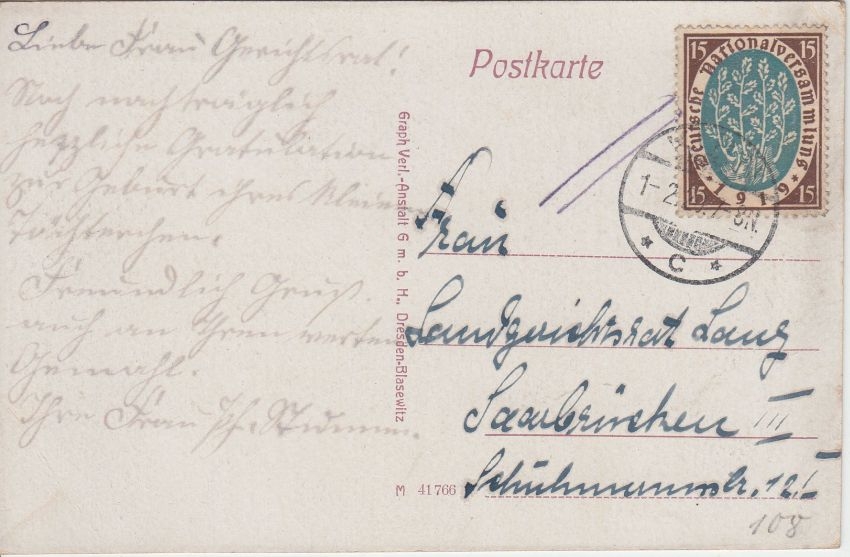 Liebe Frau Gerichtsrat!
Noch nachträglich
herzliche Gratulation
zur Geburt ihres kleinen
Töchterchen.
Freundlich Gruß.
auch an Ihren werten
Gemahl.
Ihre Frau
Graph Verl.-Anstalt G m. b. H., Dresden-Blasewitz
M 41766
Postkarte
15 15
Deutsche Nationalversammlung
* 1919 *
15 15
1-2
N.
* C *
Frau
Landgerichtsrat Lang
Saarbrücken III
Schuhmannstr. 12 I
108